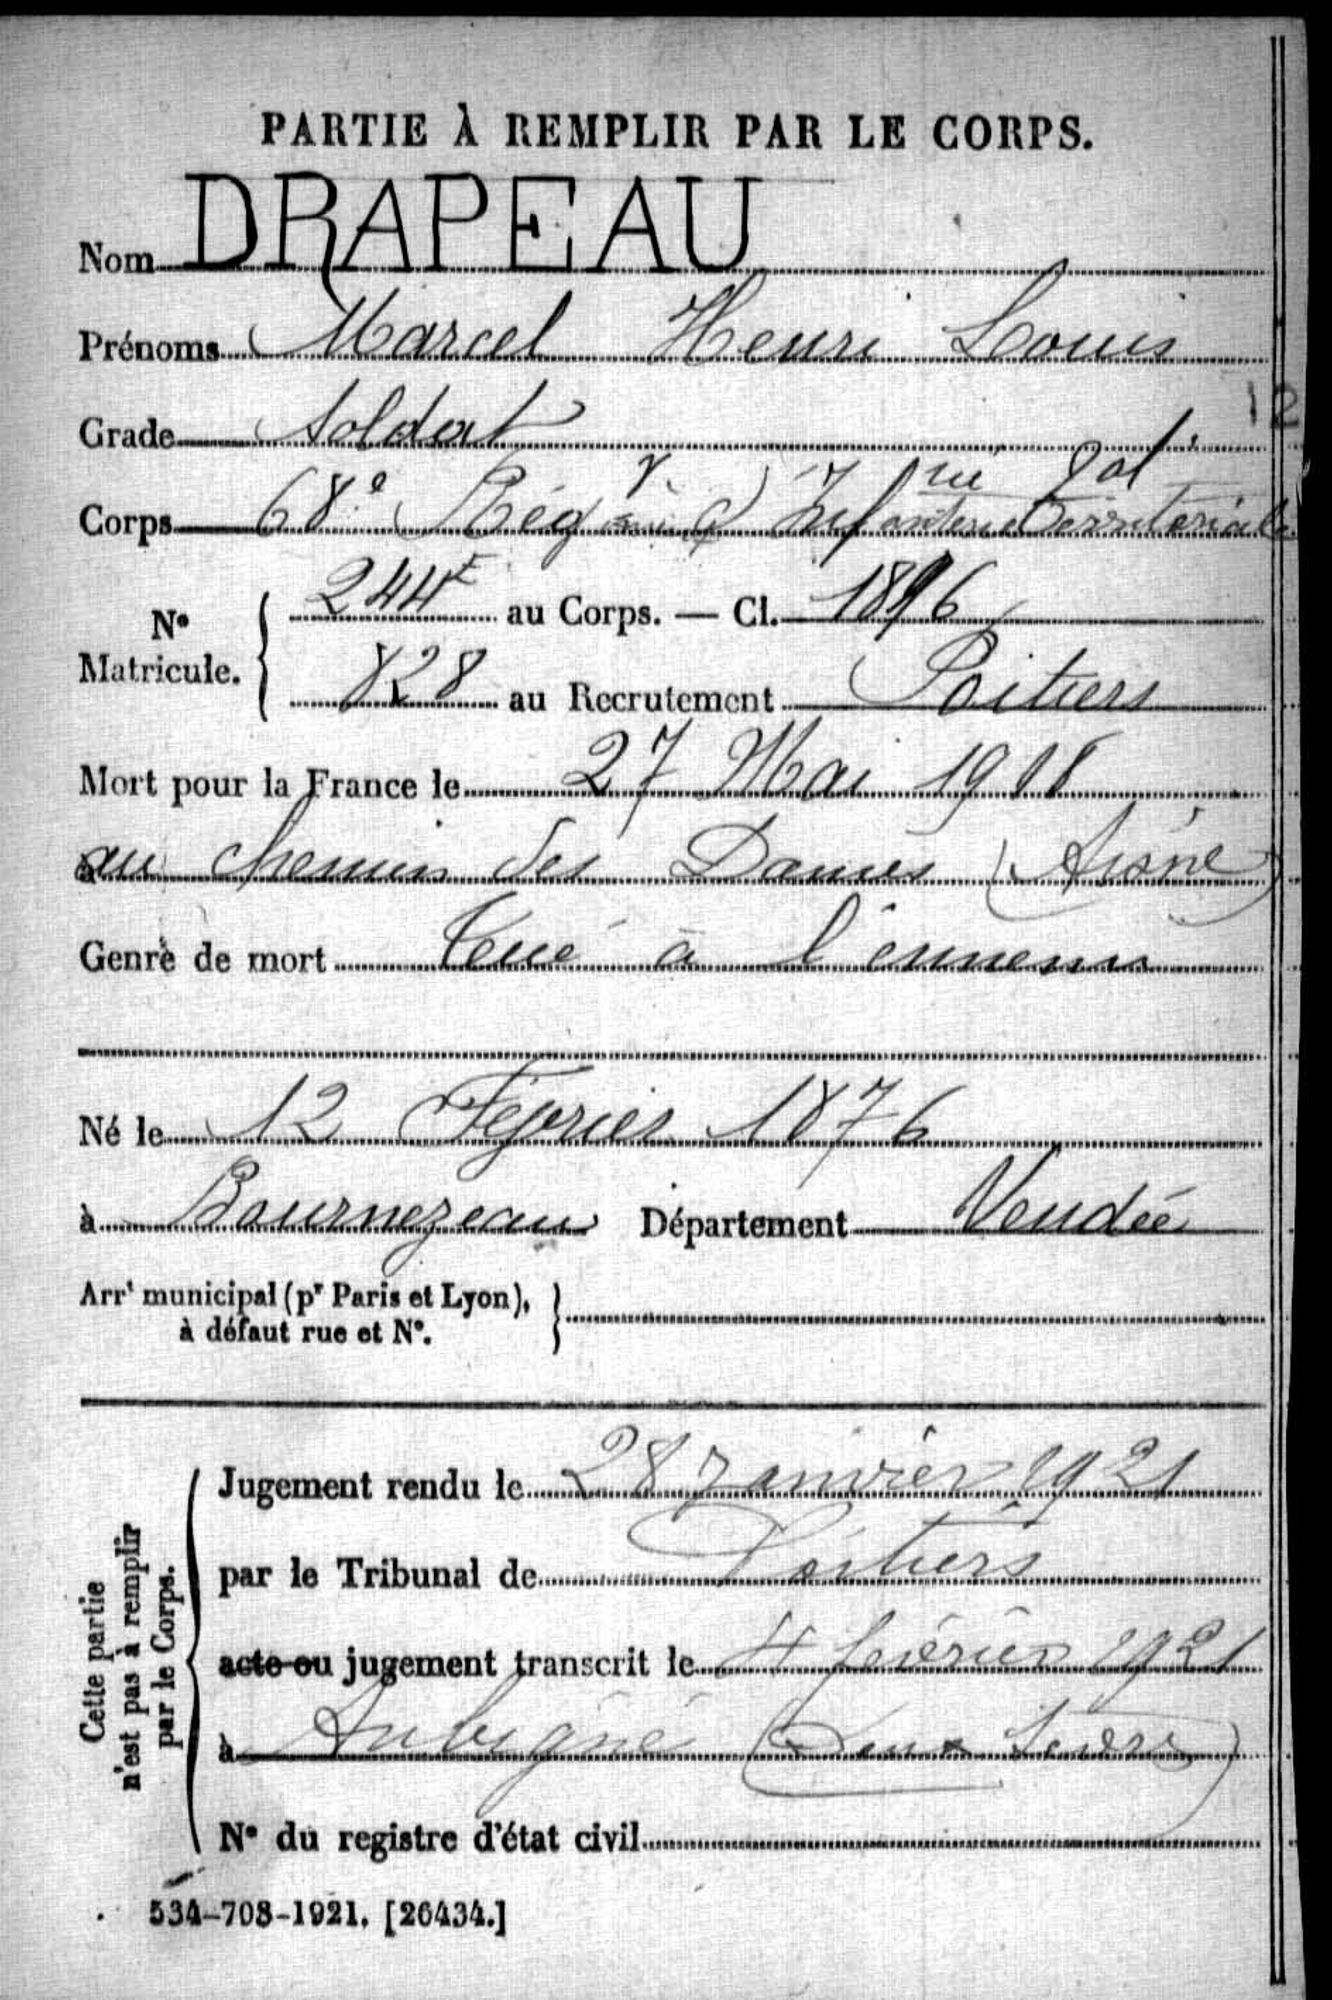 PARTIE À REMPLIR PAR LE CORPS.
Nom DRAPEAU
Prénoms Marcel Henri Louis
12
Grade Soldat
Corps 68e Rég d'Infanterie Territoriale
N° Matricule. 244E au Corps. — Cl. 1896
828 au Recrutement Poitiers
Mort pour la France le 27 Mai 1918
au chemin des Dames (Aisne)
Genre de mort Tué à l'ennemi
Né le 12 Février 1876
à Bournezeau Département Vendée
Arrt municipal (pr Paris et Lyon),
à défaut rue et N°.
Cette partie
n'est pas à remplir
par le Corps.
Jugement rendu le 28 Janvier 1921
par le Tribunal de Poitiers
acte ou jugement transcrit le 4 février 1921
à Aubigné (Deux Sèvre)
N° du registre d'état civil
534-708-1921. [26434.]